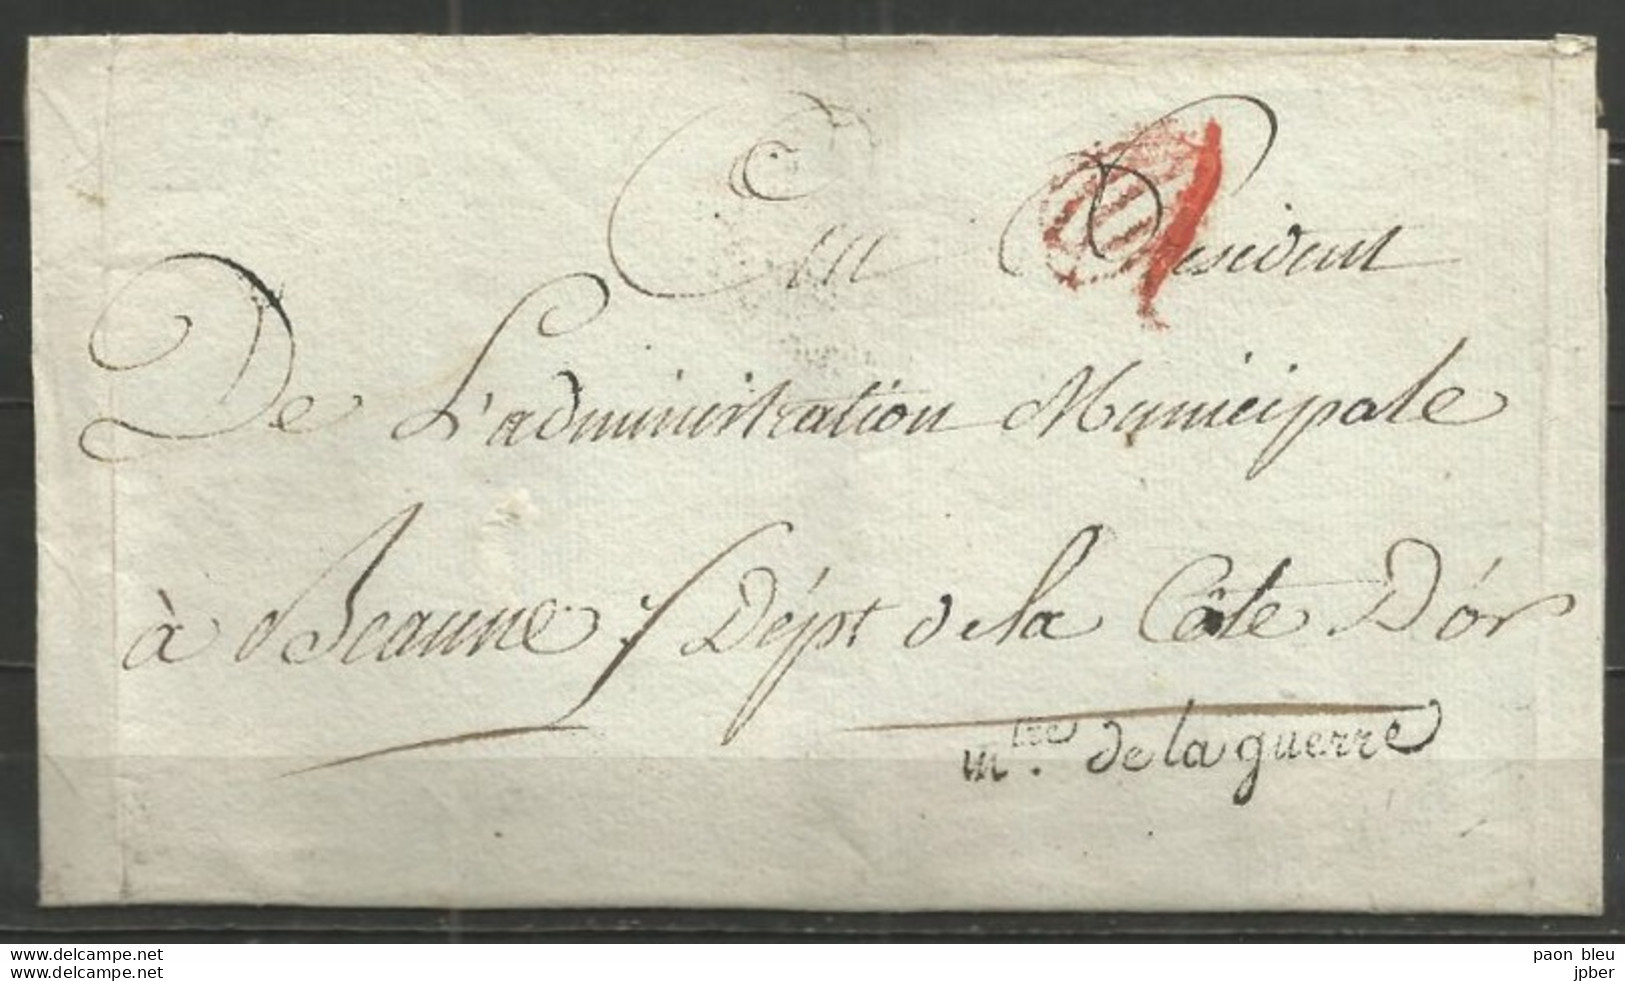 Cen President
De L'administration Municipale
à Beaune / Dépt de la Côte D'ór
mtre. de la guerre
www.delcampe.net
www.delcampe.net
paon bleu
jpber